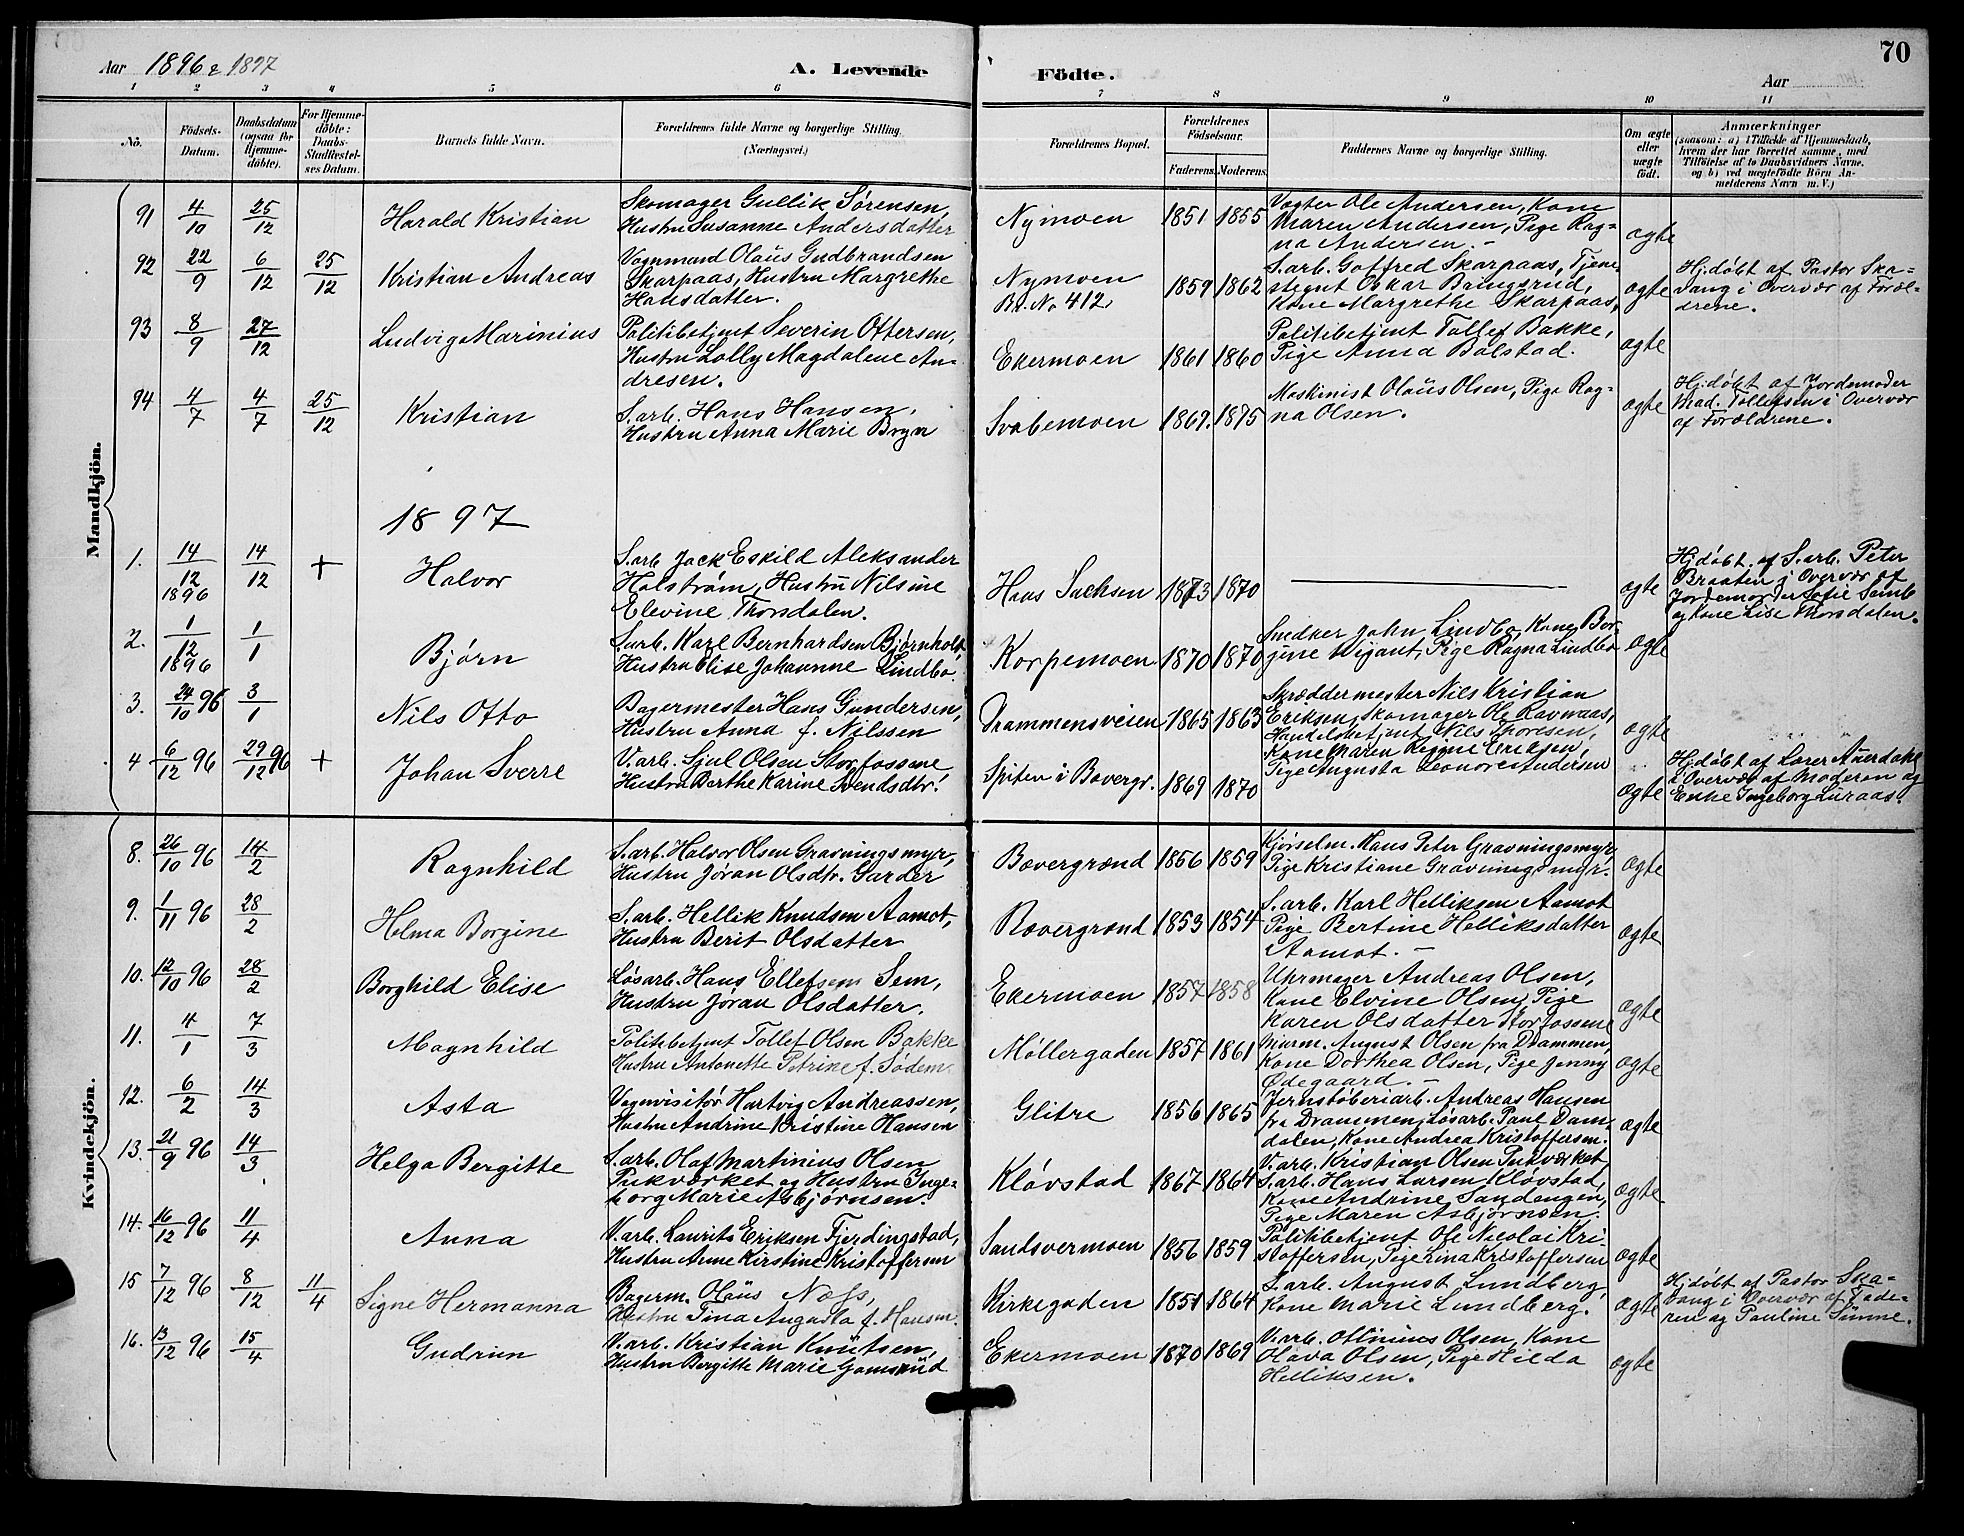 70
Aar 1896 & 1897
A. Levende Födte.
Aar
1 2 3 4 5 6 7 8 9 10 11
No.
Födsels-
Datum.
Daabsdatum
(ogsaa for
Hjemme-
döbte).
For Hjemme-
döbte:
Daabs-
Stadfæstel-
ses Datum.
Barnets fulde Navn.
Forældrenes fulde Navne og borgerlige Stilling.
(Næringsvei.)
Forældrenes Bopæl.
Forældrenes
Födselsaar.
Faderens. Moderens.
Faddernes Navne og borgerlige Stilling.
Om ægte
eller
uægte
födt.
Anmærkninger
(saasom: a) i Tilfælde af Hjemmedaab,
hvem der har forrettet samme, med
Tilföielse af to Daabsvidners Navne,
og b) ved uægtefödte Börn An-
melderens Navn m. V.)
Mandkjön.
91 4/10 25/12 Harald Kristian
Skomager Gullik Sørensen,
Hustru Susanne Andersdatter
Nymoen 1851 1855
Vogter Ole Andersen, Kone
Maren Andersen, Pige Rag-
na Andersen. -
ægte
92 22/9 6/12 25/12 Kristian Andreas
Vognmand Olaus Gudbrandsen
Skarpaas, Hustru Margrethe
Hansdatter.
Nymoen
B.N. No 412,
1859 1862
S.arb. Gotfred Skarpaas, Tjene-
stegut Oskar Bringsrud,
Kone Margrethe Skarpaas,
ægte
Hj.døbt af Pastor Ska-
vang i Overvær af Foræl-
drene.
93 8/9 27/12 Ludvig Marinius
Politibetjent Severin Ottersen,
Hustru Lolly Magdalene An-
dresen.
Ekermoen 1861 1860
Politibetjent Tollef Bakke,
Pige Anna Bolstad.
ægte
94 4/7 4/7 25/12 Kristian
S.arb. Hans Hansen,
Hustru Anna Marie Bryn
Svabemoen 1869. 1875
Maskinist Olaus Olsen, Pige Rag-
na Olsen.
ægte
Hj.døbt af Jordemoder
Mad. Tollefsen i Overvær
af Forældrene.
1897
1. 14/12 1896 14/12 + Halvor
S.arb. Jack Eskild Aleksander
Holstrøm, Hustru Nilsine
Elevine Thorsdalen.
Hans Sachsen 1873 1870
ægte
Hj.døbt af S.arb. Peter
Braaten i Overvær af
Jordemoder Sofie Semb
og Kone Lise Thorsdalen.
2. 1/12 1896 1/1 Bjørn
S.arb. Karl Bernhardsen Bjørnholt
Hustru Elise Johannne Lindbo.
Korpemoen 1870 1870
Snedker John Lindbo, Kone Bor-
gine Wigant, Pige Ragna Lindbo
ægte
3. 24/10 96 3/1 Nils Otto
Bagermester Hans Gundersen,
Hustru Anna f. Nilssen
Drammensveien 1865 1863
Skræddermester Nils Kristian
Eriksen, Skomager Ole Ravnaas,
Handelsbetjent Nils Thoresen,
Kone Maren Regine Eriksen,
Pige Augusta Leonore Andersen
ægte
4 6/12 96 29/12 96 + Johan Sverre
V.arb. Sjul Olsen Storfossene
Hustru Berthe Karine Svendsdtr.
Spiten i Bævergr. 1869 1870
ægte
Hj.døbt af Lærer Aaerdahe
i Overvær af Moderen og
Enke Ingeborg Luraas.
Kvindekjön.
8. 26/10 96 14/2 Ragnhild
S.arb. Halvor Olsen Gravningsmyr,
Hustru Jøran Olsdtr. Garder
Bævergrænd 1856 1859
Kjørselm. Hans Peter Gravningsmyr,
Pige Kristiane Gravningsmyr.
ægte
9. 1/11 96 28/2 Helma Borgine
S.arb. Hellik Knudsen Aamot,
Hustru Berit Olsdatter
Bævergrænd 1853 1854
S.arb. Karl Helliksen Aamot
Pige Bertine Helliksdatter
Aamot. -
ægte
10. 12/10 96 28/2 Borghild Elise
Løsarb. Hans Ellefsen Sem,
Hustru Jøran Olsdatter.
Ekermoen 1857 1858
Uhrmager Andreas Olsen,
Kone Elvine Olsen, Pige
Karen Olsdatter Storfossene
ægte
11. 4/1 7/3 Magnhild
Politibetjent Tollef Olsen Bakke
Hustru Antonette Petrine f. Sødem.
Møllergaden 1857 1861
Murm. August Olsen fra Drammen,
Kone Dorthea Olsen, Pige Jenny
Ødegaard. -
ægte
12. 6/2 14/3 Asta
Vognvisitør Hartvig Andreassen,
Hustru Andrine Kristine Hansen
Glitre 1856 1865
Jernstøberiarb. Andreas Hansen
fra Drammen, Løsarb. Paul Dam-
dalen, Kone Andrea Kristoffersen.
ægte
13. 21/9 96 14/3 Helga Bergitte
S.arb. Olaf Martinius Olsen
Pukværket og Hustru Inge-
borg Marie Asbjørnsen.
Kløvstad 1867 1864
V.arb. Kristian Olsen Pukværket,
S.arb. Hans Larsen Kløvstad,
Kone Andrine Sandengen,
Pige Maren Asbjørnsen.
ægte
14. 16/12 96 11/4 Anna
V.arb. Laurits Eriksen Fjerdingstad,
Hustru Anne Kirstine Kristoffersen
Sandsværmoen 1856 1859
Politibetjent Ole Nicolai Kri-
stoffersen, Pige Lina Kristoffersen
ægte
15 7/12 96 8/12 11/4 Signe Hermanna
Bagerm. Olaus Næss,
Hustru Tina Augusta f. Hansen.
Kirkegaden 1851 1864
S.arb. August Lundberg,
Kone Marie Lundberg.
ægte
Hj.døbt af Pastor Ska-
vang i Overvær af Fade-
ren og Pauline Simne.
16. 13/12 96 15/4 Gudrun
V.arb. Kristian Knutsen,
Hustru Bergitte Marie Gomsrud
Ekermoen 1870 1869
V.arb. Ottinius Olsen, Kone
Olava Olsen, Pige Hilda
Helliksen.
ægte